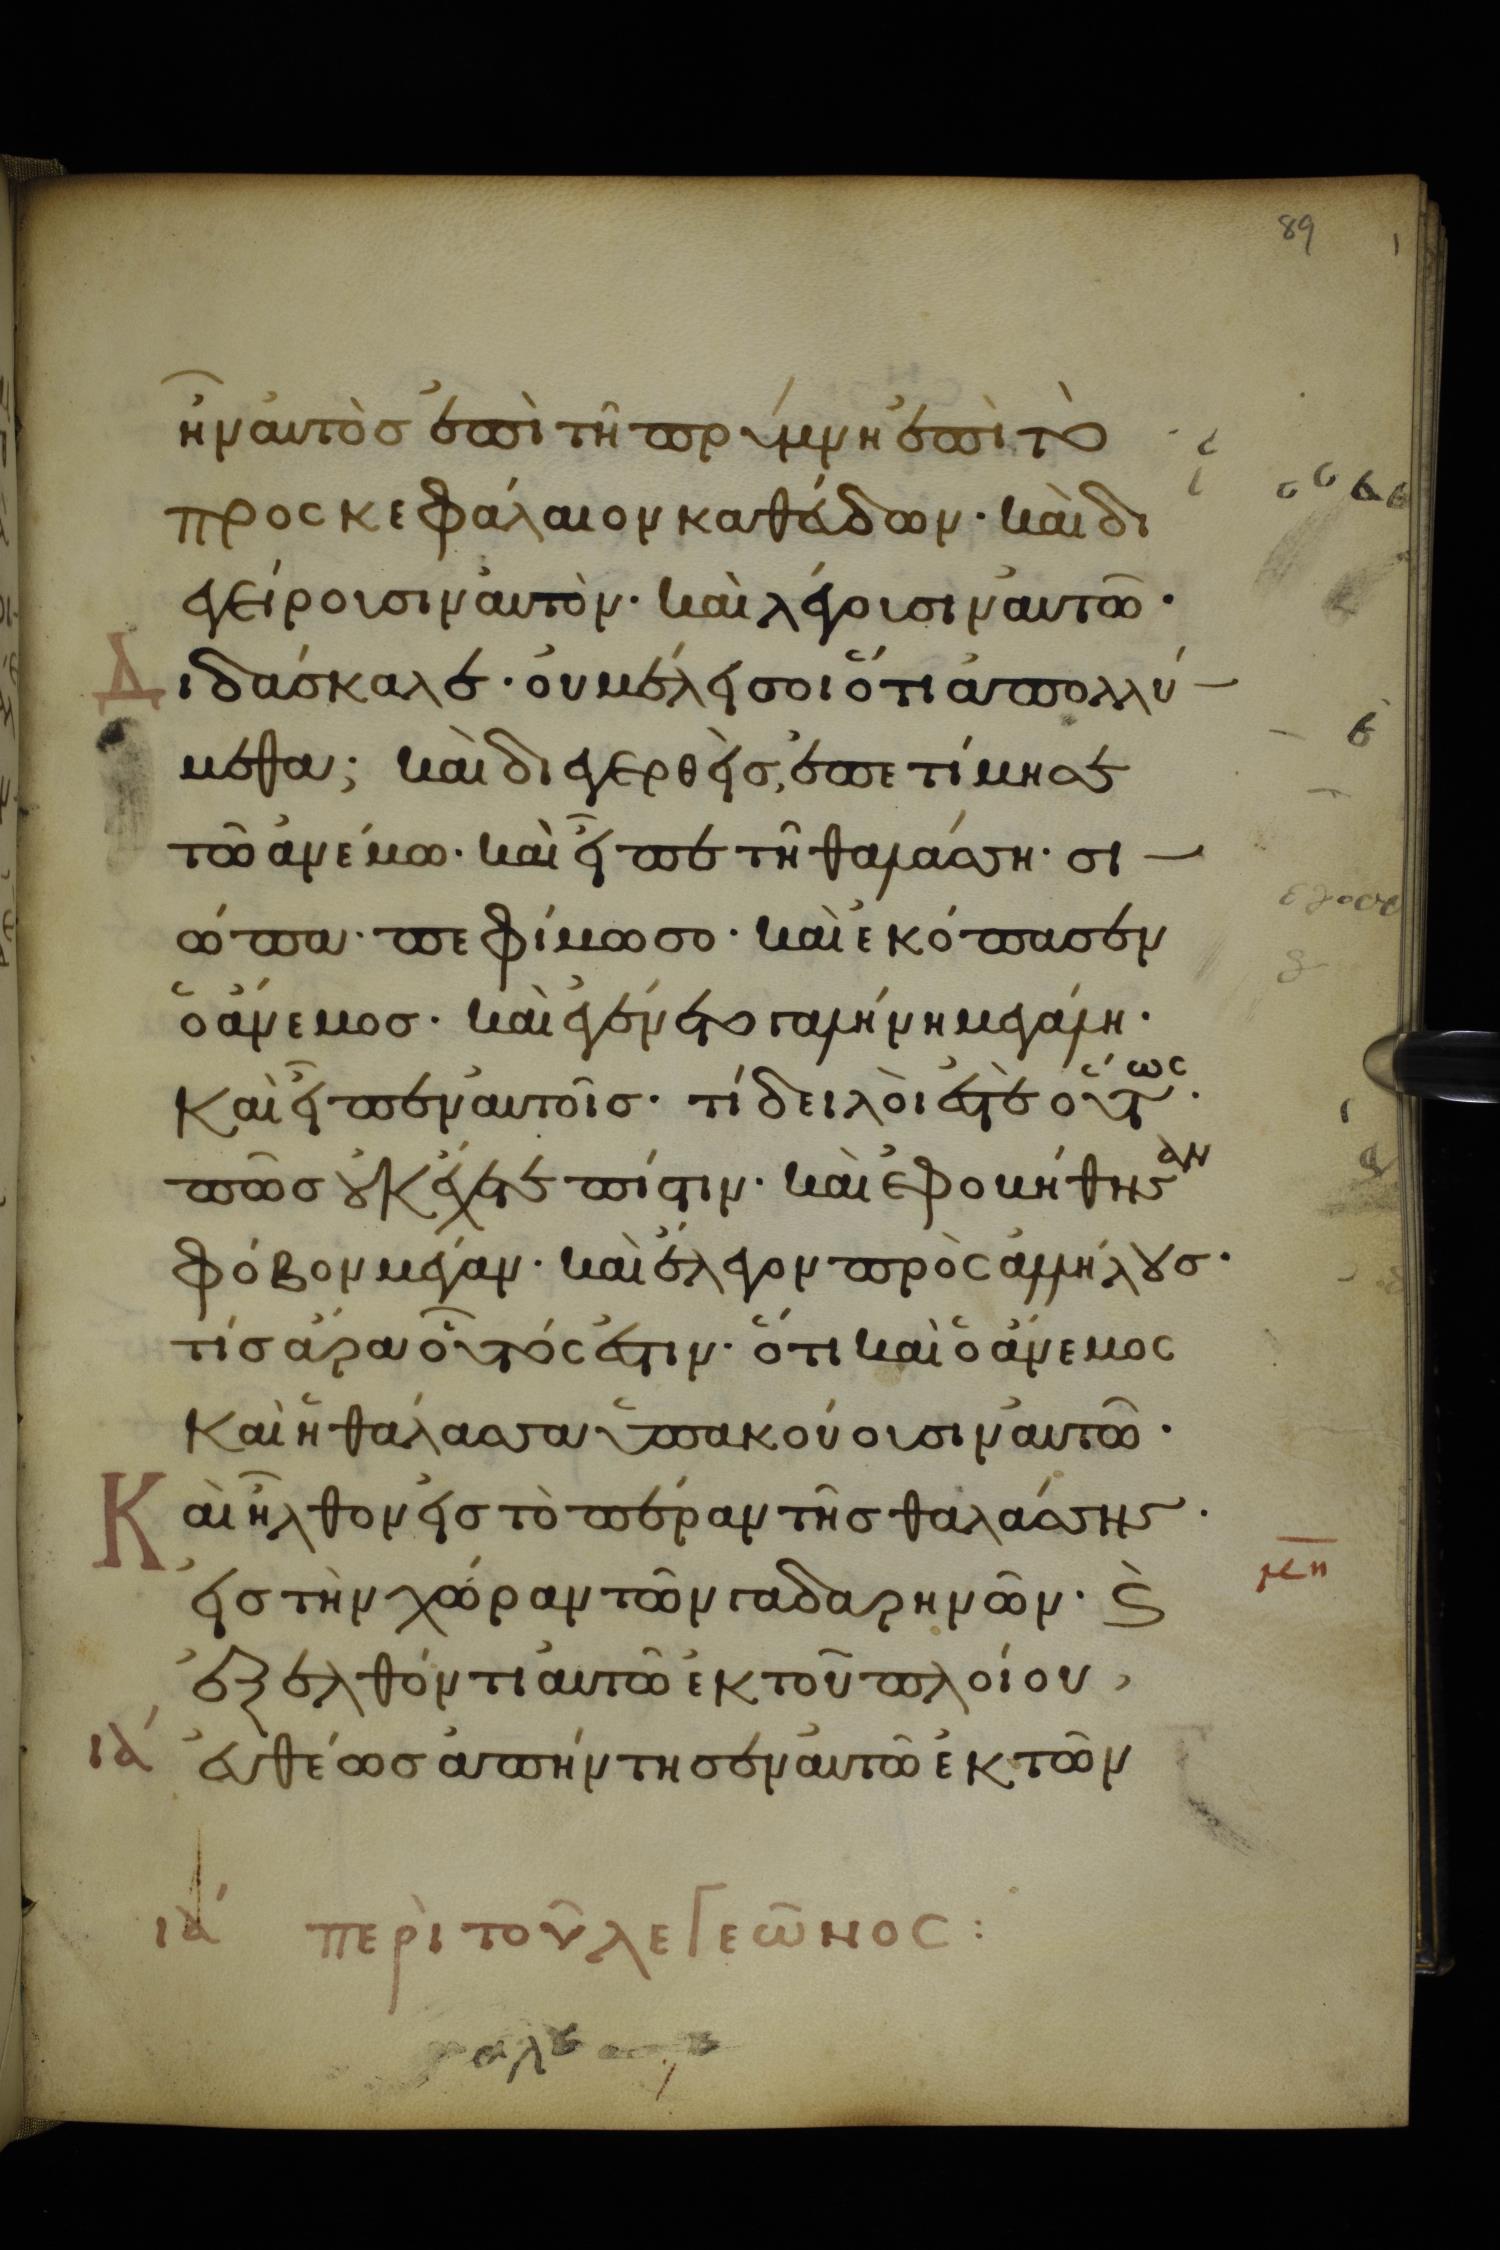 89
ἦν αὐτὸσ ἐπὶ τῆ πρύμνη ἐπὶ τὸ
προσκεφάλαιον καθεύδων· καὶ δι
εγείρουσιν αὐτὸν· καὶ λέγουσιν αὐτῶ·
Διδάσκαλε· οὐ μέλει σοι ὅτι ἀπολλύ
μεθα; καὶ διεγερθεὶσ, ἐπετίμησε
τῶ ἀνέμω· καὶ εἶπε τῆ θαλάσση· σι
ώπα· πεφίμωσο· καὶ ἐκόπασεν
ὁ ἄνεμοσ· καὶ ἐγένετο γαλήνη μεγάλη·
Καὶ εἶπεν αὐτοῖσ· τί δειλοί ἐστὲ οὕτως·
πῶσ οὐκ ἔχετε πίστιν· καὶ ἐφοβήθησαν
φόβον μέγαν· καὶ ἔλεγον πρὸς ἀλλήλουσ·
τίσ ἄρα οὗτός ἐστιν· ὅτι καὶ ὁ ἄνεμος
καὶ ἡ θάλασσα ὑπακούουσιν αὐτῶ·
Καὶ ἦλθον εἰσ τὸ πέραν τῆσ θαλάσσησ·
εἰσ τὴν χώραν τῶν γαδαρηνῶν· Ϗ
μη
ἐξελθόντι αὐτῶ ἐκ τοῦ πλοίου,
ια΄ εὐθέωσ ἀπήντησεν αὐτῶ ἐκ τῶν
ια΄ περὶ τοῦ λεγεῶνος: